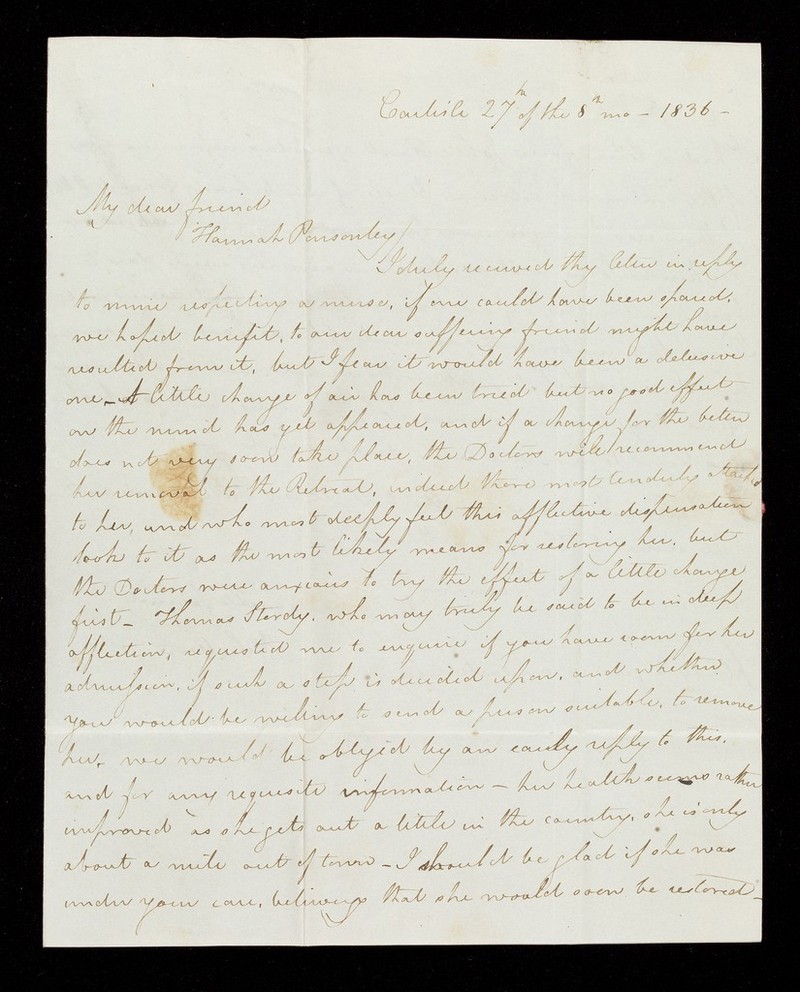 Carlisle 27th of the 8th mo - 1836 -
My dear friend
Hannah Ponsonby/
I duly received thy letter in reply
to mine respecting a nurse, if one could have been spared,
we hoped benifit, to our dear suffering friend might have
resulted from it, but I fear it would have been a delusive
one - A little change of air has been tried but no good effect
on the mind has yet appeared, and if a change for the better
does not very soon take place, the Doctors will recommend
her removal to the Retreat, indeed those most tenderly attached
to her, and who most deeply feel this afflictive dispensation
look to it as the most likely means for restoring her, but
the Doctors were anxious to try the effect of a little change
first - Thomas Stordy, who may truly be said to be in deep
affliction, requested me to enquire if you have room for her
admission, if such a step is decided upon, and whether
you would be willing to send a person suitable, to remove
her, we would be obliged by an early reply to this,
and for any requisite information - her health seems rather
improved as she gets out a little in the country, she is only
about a mile out of town - I should be glad if she was
under your care, believing that she would soon be restored -